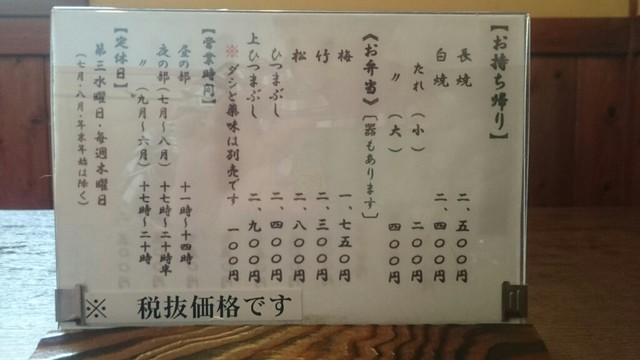 【お持ち帰り】
長焼 二、五〇〇円
白焼 二、四〇〇円
たれ（小） 二〇〇円
〃（大） 四〇〇円
《お弁当》〔器もあります〕
梅 一、七五〇円
竹 二、三〇〇円
松 二、八〇〇円
ひつまぶし 二、四〇〇円
上ひつまぶし 二、九〇〇円
※ダシと薬味は別売です 一〇〇円
【営業時間】
昼の部 十一時～十四時
夜の部（七月～八月） 十七時～二十時半
〃（九月～六月） 十七時～二十時
【定休日】
第三水曜日・毎週木曜日
（七月・八月・年末年始は除く）
※ 税抜価格です